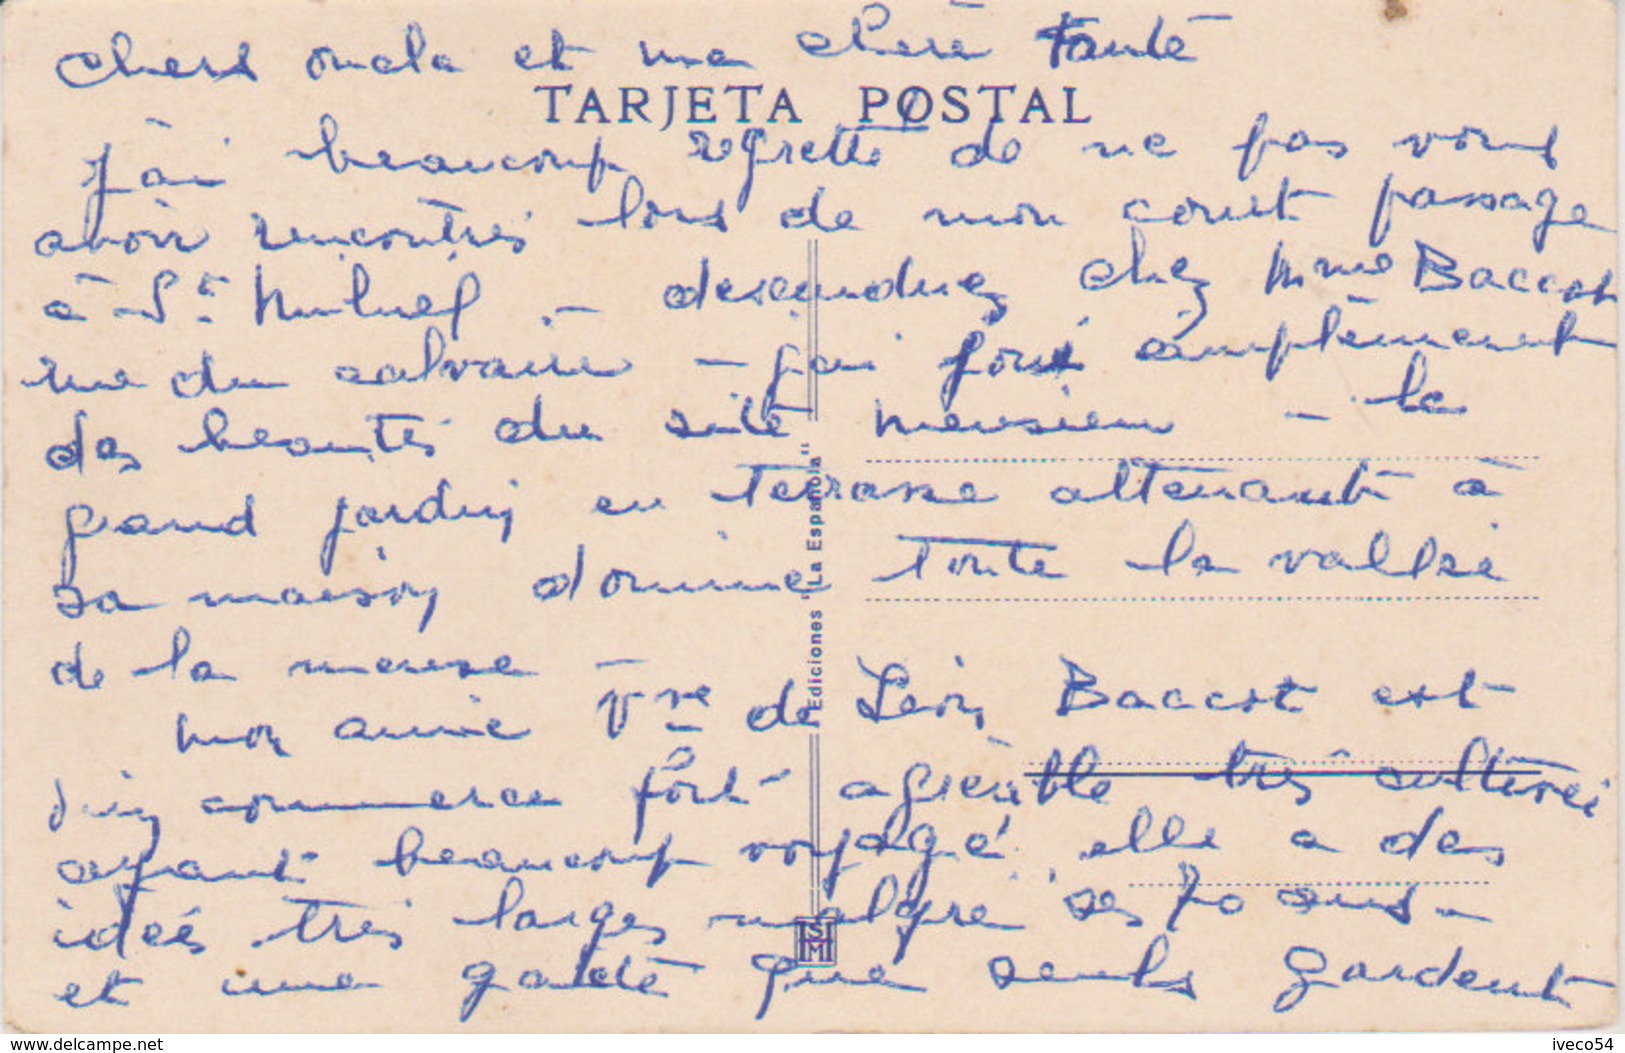 chers oncle et ma chère tante
TARJETA POSTAL
J'ai beaucoup regretté de ne pas vous
avoir rencontrés lors de mon court passage
à St Mihiel - descendue chez Mme Baccot
rue du calvaire - j'ai joui simplement
des beautés du site meusien - le
grand jardin en terrasse attenant à
sa maison domine toute la vallée
de la meuse -
mon amie Vve de Léon Baccot est
d'un commerce fort agréable très cultivée
ayant beaucoup voyagé, elle a des
idées très larges malgré ses 70 ans -
et une gaîté que seuls gardent
Ediciones "La Española"
delcampe.net
iveco54